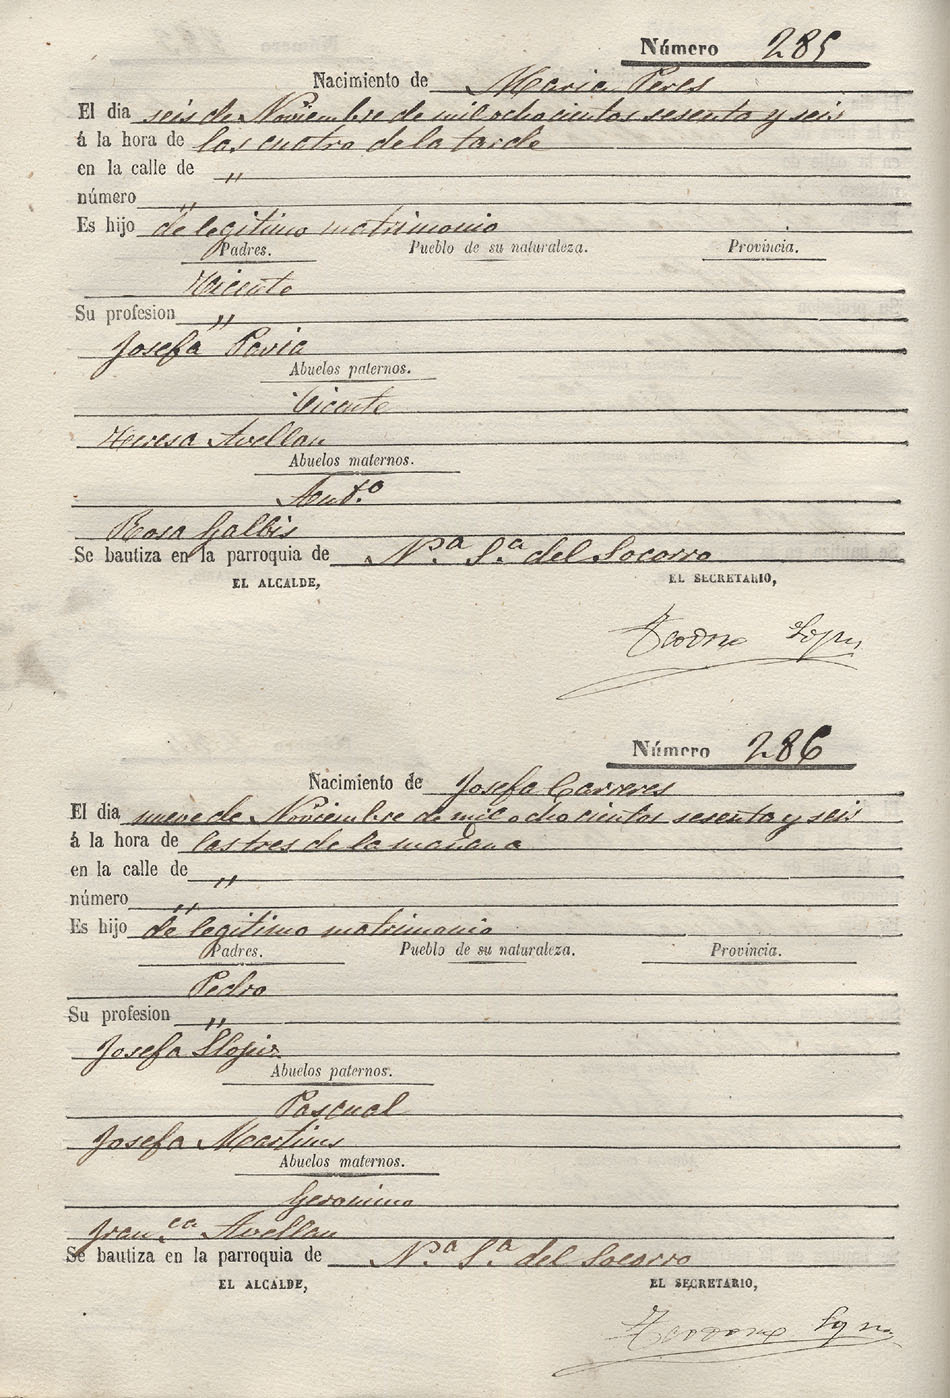 Número 285
Nacimiento de Maria Peres
El dia seis de Noviembre de mil ochocientos sesenta y seis
á la hora de las cuatro de la tarde
en la calle de "
número "
Es hijo de legitimo matrimonio
Padres. Pueblo de su naturaleza. Provincia.
Vicente
Su profesion "
Josefa Pavia
Abuelos paternos.
Vicente
Teresa Avellan
Abuelos maternos.
Ant.o
Rosa Galbis
Se bautiza en la parroquia de N.a S.a del Socorro
EL ALCALDE, EL SECRETARIO,
Teodoro Lopez
Número 286
Nacimiento de Josefa Carreres
El dia nueve de Noviembre de mil ochocientos sesenta y seis
á la hora de las tres de la mañana
en la calle de "
número "
Es hijo de legitimo matrimonio
Padres. Pueblo de su naturaleza. Provincia.
Pedro
Su profesion "
Josefa Llopis
Abuelos paternos.
Pascual
Josefa Martines
Abuelos maternos.
Geronimo
Fran.ca Avellan
Se bautiza en la parroquia de N.a S.a del Socorro
EL ALCALDE, EL SECRETARIO,
Teodoro Lopez